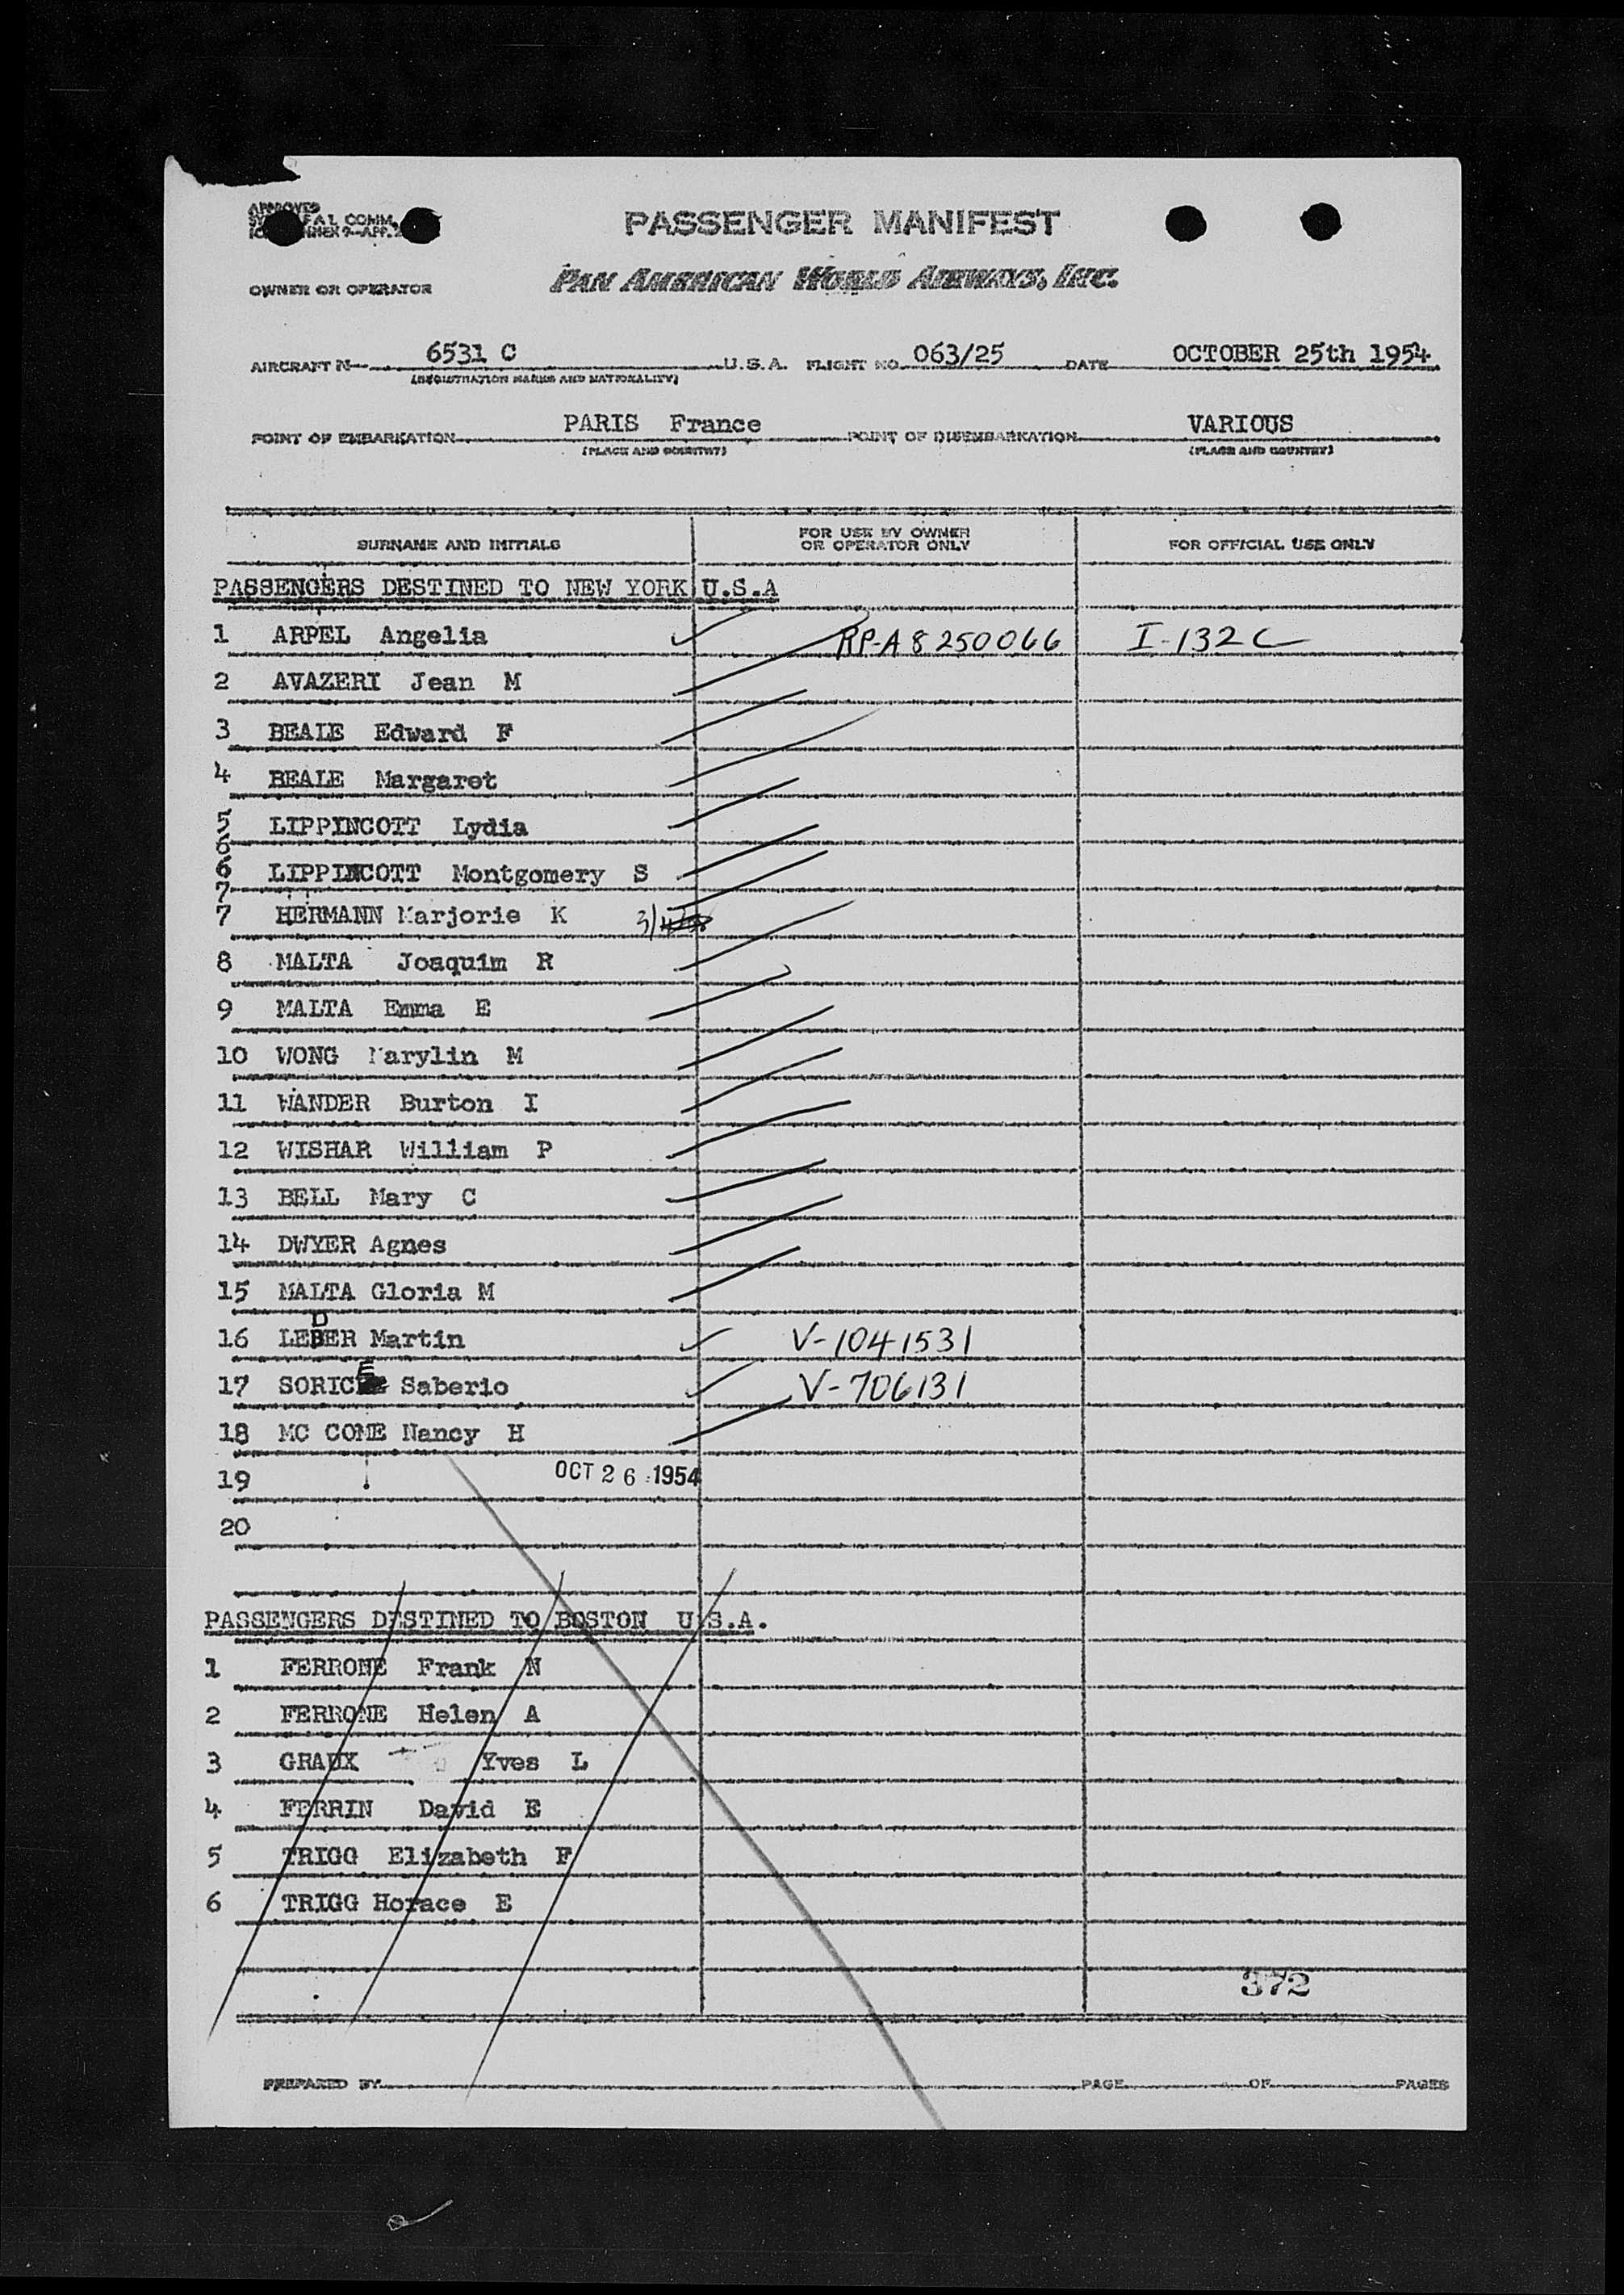 APPROVED
F A L COMM.
ANNEX 9-APP.
PASSENGER MANIFEST
OWNER OR OPERATOR PAN AMERICAN WORLD AIRWAYS, INC.
AIRCRAFT N 6531 C U.S.A. FLIGHT NO. 063/25 DATE OCTOBER 25th 1954
(REGISTRATION MARKS AND NATIONALITY)
POINT OF EMBARKATION PARIS France POINT OF DISEMBARKATION VARIOUS
(PLACE AND COUNTRY) (PLACE AND COUNTRY)
SURNAME AND INITIALS FOR USE BY OWNER OR OPERATOR ONLY FOR OFFICIAL USE ONLY
PASSENGERS DESTINED TO NEW YORK U.S.A
1 ARPEL Angelia RP-A8250066 I-132C
2 AVAZERI Jean M
3 BEALE Edward F
4 BEALE Margaret
5 LIPPINCOTT Lydia
6
6 LIPPINCOTT Montgomery S
7
7 HERMANN Marjorie K 3/
8 MALTA Joaquim R
9 MALTA Emma E
10 WONG Marylin M
11 WANDER Burton I
12 WISHAR William P
13 BELL Mary C
14 DWYER Agnes
15 MALTA Gloria M
D
16 LEBER Martin V-1041531
E
17 SORIC Saberio V-706131
18 MC COME Nancy H
19 OCT 26 1954
20
PASSENGERS DESTINED TO BOSTON U.S.A.
1 FERRONE Frank N
2 FERRONE Helen A
3 GRAUX Yves L
4 FERRIN David E
5 TRIGG Elizabeth F
6 TRIGG Horace E
372
PREPARED BY PAGE OF PAGES